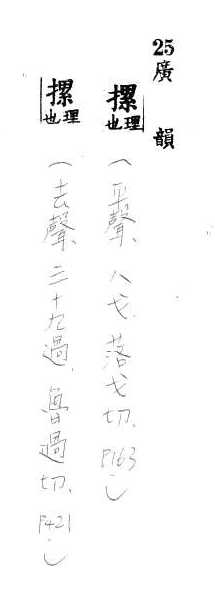 25廣韻
摞理也(平聲、八戈、落戈切、P163)
摞理也(去聲、三十九過、魯過切、P421)